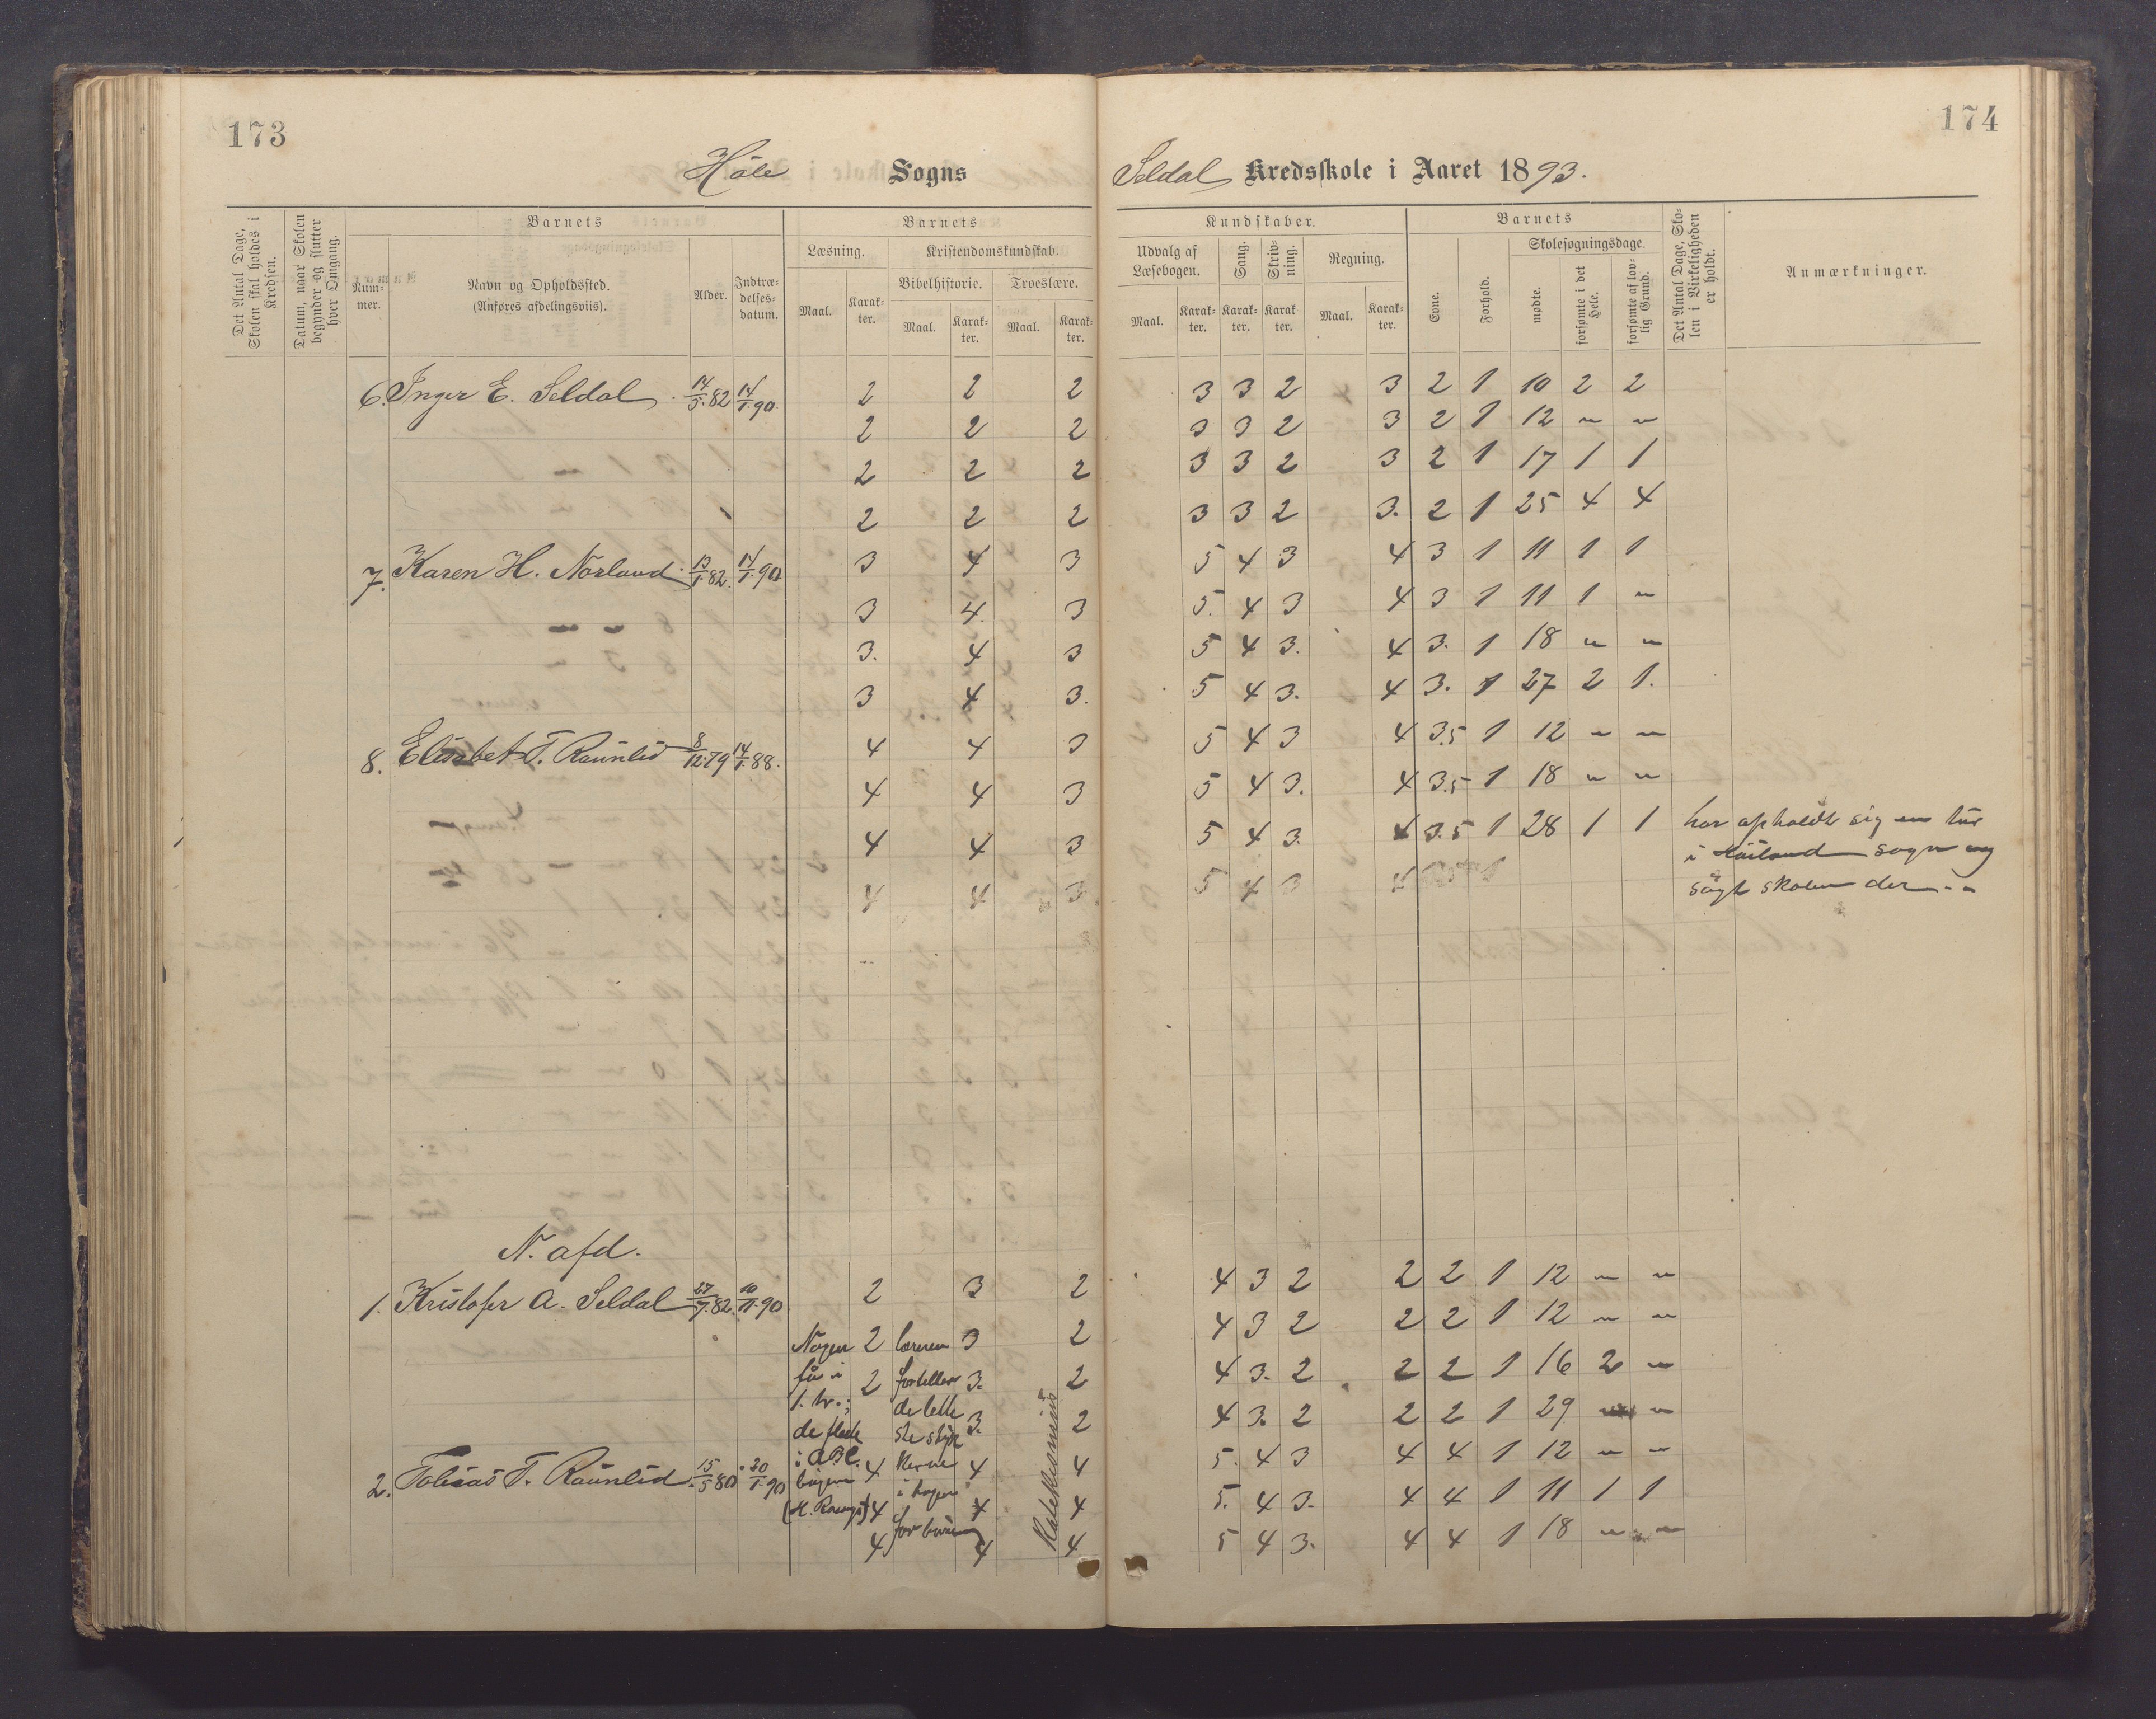 173
174
Höle Sogns
Seldal Kredsskole i Aaret 1893.
Det Antal Dage, Skolen skal holdes i Kredsen.
Datum, naar Skolen begynder og slutter hver Omgang.
Barnets
Num-mer.
Navn og Opholdssted.
(Anføres afdelingsviis).
Alder.
Indtræ-delses-datum.
Barnets
Læsning.
Kristendomskundskab.
Bibelhistorie.
Troeslære.
Maal.
Karak-ter.
Maal.
Karak-ter.
Maal.
Karak-ter.
Kundskaber.
Udvalg af Læsebogen.
Sang.
Skriv-ning.
Regning.
Maal.
Karak-ter.
Karak-ter.
Karak ter.
Maal.
Karak-ter.
Barnets
Evne.
Forhold.
Skolesøgningsdage.
mødte.
forsømte i det Hele.
forsømte af lov-lig Grund.
Det Antal Dage, Sko-len i Virkeligheden er holdt.
Anmærkninger.
6. Inger E. Seldal. 14/5.82 14/1.90. 2 2 2 3 3 2 3 2 1 10 2 2
2 2 2 3 3 2 3 2 1 12 " "
2 2 2 3 3 2 3 2 1 17 1 1
2 2 2 3 3 2 3. 2 1 25 4 4
7. Karen H. Norland. 13/1.82. 14/1.90 3 4 3 5 4 3 4 3 1 11 1 1
3 4. 3 5. 4 3 4 3 1 11 1 "
3. 4 3 5 4 3. 4 3. 1 18 " "
3 4 3. 5 4 3. 4 3. 1 27 2 1.
8. Elisabet T. Raunlid 8/12.79 14/1.88. 4 4 3 5 4 3 4 3.5 1 12 " "
4 4 3 5 4 3. 4 3.5 1 18 " "
4 4 3 5 4 3. 4 3.5 1 28 1 1 har opholdt sig en tur
i Höiland sogn og
4 4 3 5 4 3 4 søgt skolen der. "
N. afd.
1. Kristofer A. Seldal 27/7.82. 10/11.90 2 3 2 4 3 2 2 2 1 12 " "
Nogen 2 læreren 3 2 4 3 2 2 2 1 12 " "
få i 2 forteller 3. 2 4 3. 2 2 2 1 16 2 "
1. tr.; de lette
de fleste ste styk 3. 2 4 3. 2 2 2 1 29 " "
2. Tobias T. Raunlid. 15/5 80 20/1.90 i ABC. 4 kerne 4 4 5. 4 3 4 4 1 12 " "
bogen i bogen
4 4 4 5. 4 3. 4 4 1 11 1 1
4 for börn 4 4 5 4 3. 4 4 1 18 " "
Katekismus